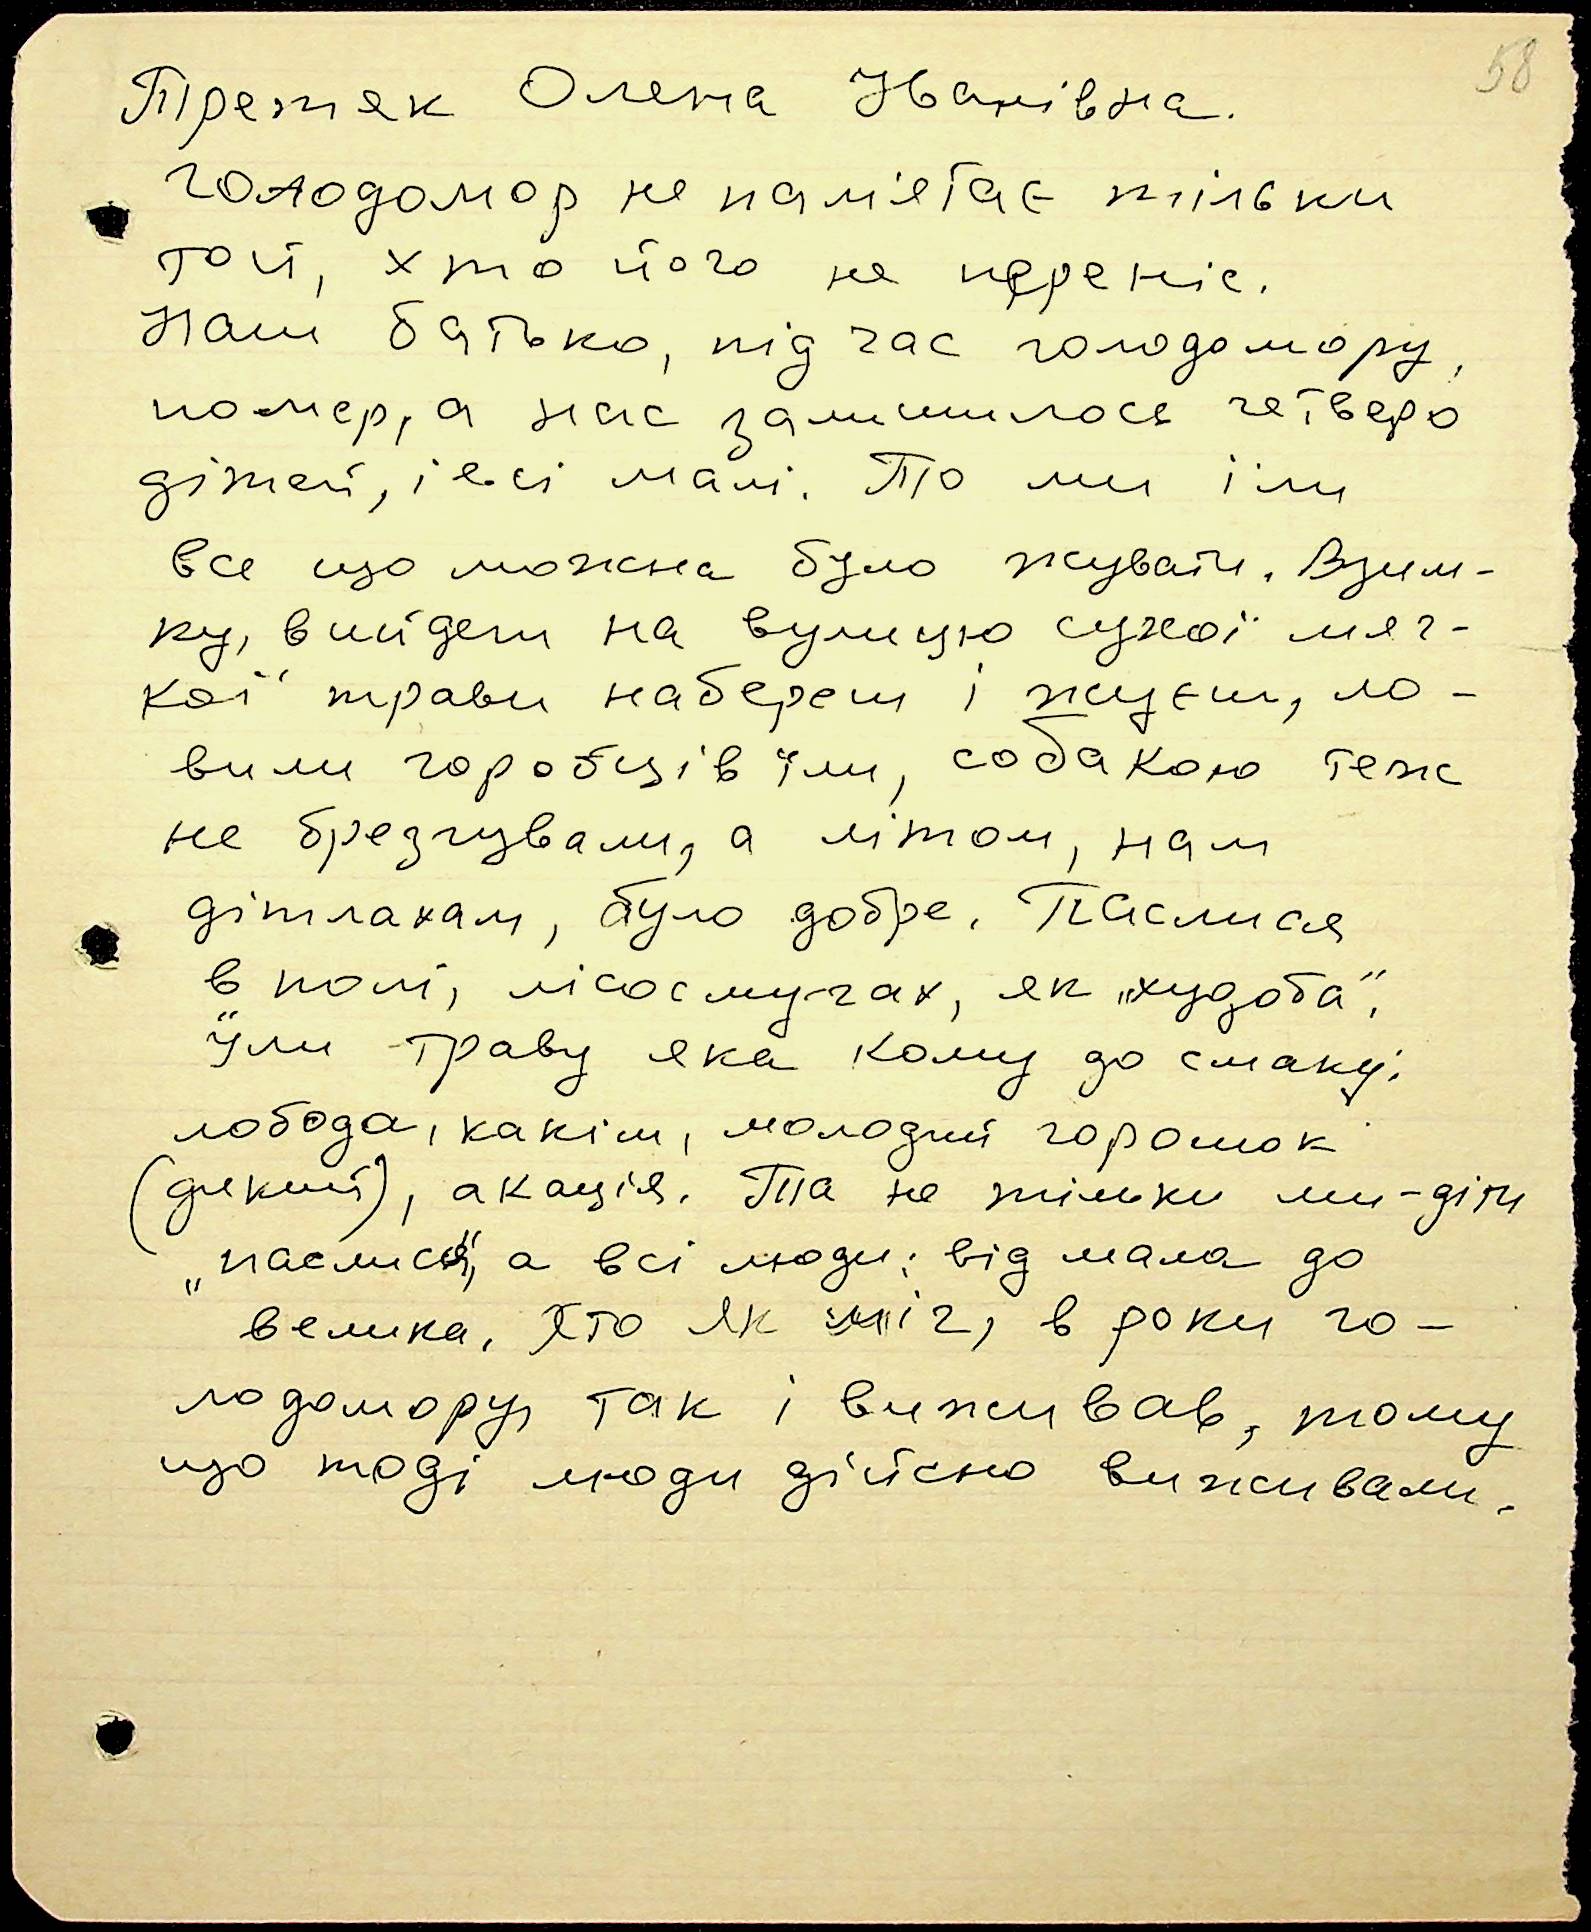 58
Третяк Олена Іванівна.
Голодомор не пам'ятає тільки
той, хто його не переніс.
Наш батько, під час голодомору,
помер, а нас залишилось четверо
дітей, і всі малі. То ми їли
все що можна було жувати. Взим-
ку, вийдеш на вулицю сухої мяг-
кої трави набереш і жуєш, ло-
вили горобців їли, собакою теж
не брезгували, а літом, нам
дітлахам, було добре. Паслися
в полі, лісосмугах, як „худоба".
Їли траву яка кому до смаку:
лобода, какіш, молодий горошок
(дикий), акація. Та не тільки ми-діти
„паслися", а всі люди: від мала до
велика. Хто як міг, в роки го-
лодомору, так і виживав, тому
що тоді люди дійсно виживали.